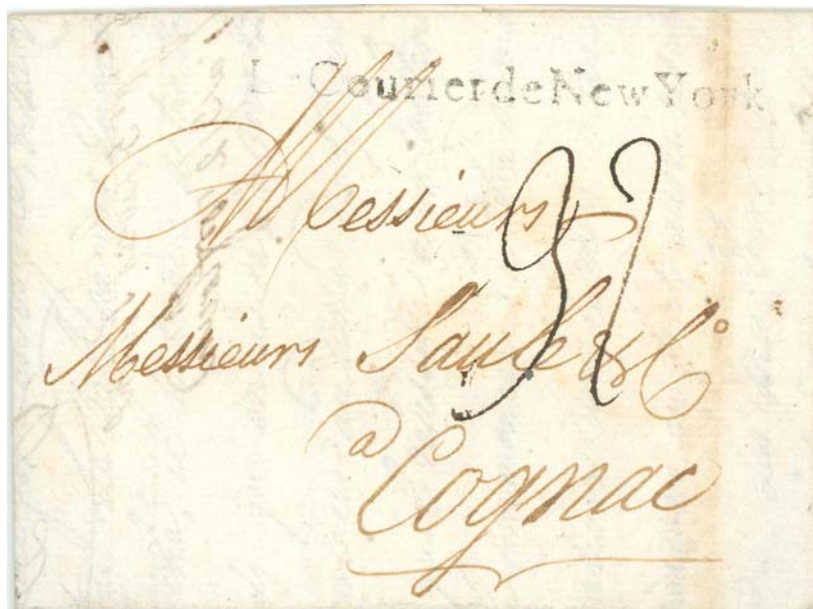 Le Courier de New York
A Messieurs
Messieurs Saule & C°
a Cognac